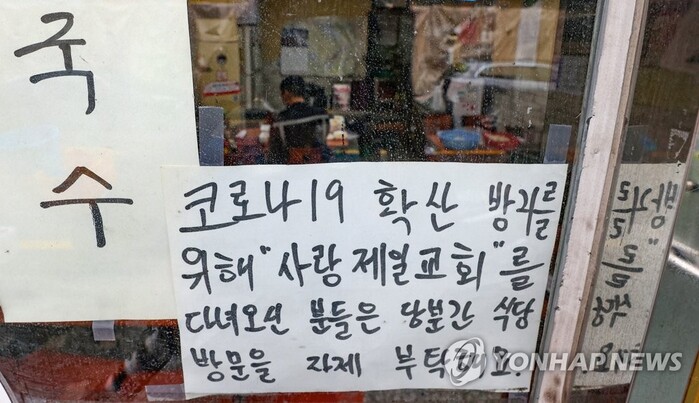 국
수
코로나19 확산 방지를
위해 "사랑제일교회"를
다녀오신 분들은 당분간 식당
방문을 자제 부탁해요
YONHAPNEWS